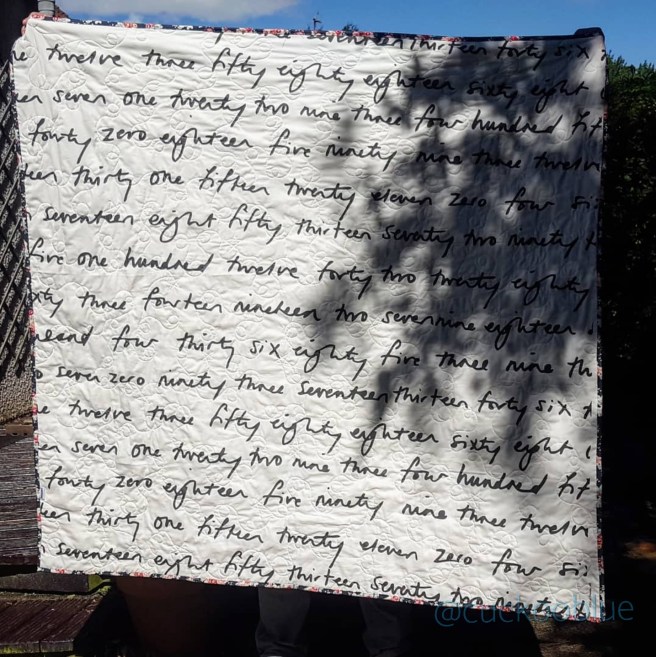 seventeen thirteen forty six
twelve three fifty eighty eighteen sixty eight
seven one twenty two nine three four hundred fif
forty zero eighteen five ninety nine three twelve
een thirty one fifteen twenty eleven zero four si
seventeen eight fifty thirteen seventy two ninety
five one hundred twelve forty two twenty eighty
xty three fourteen nineteen two sevennine eighteen
four thirty six eighty five three nine th
o seven zero ninety three seventeen thirteen forty six
e twelve three fifty eighty eighteen sixty eight
en seven one twenty two nine three four hundred fif
fowty zero eighteen five ninety nine three twelve
een thirty one fifteen twenty eleven zero four six
seventeen eight fifty thirteen seventy two ninety
@cuckooblue